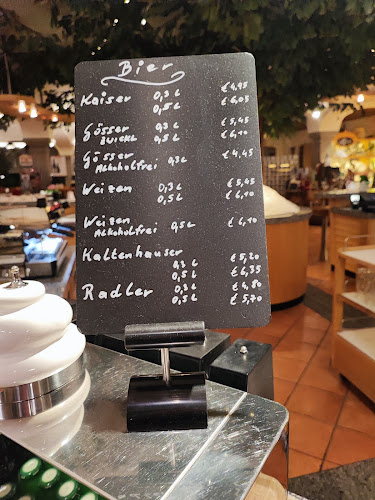 Bier
Kaiser 0,3 L € 4,95
0,5 L € 6,05
Gösser 0,3 L € 5,45
ZWICKL 0,5 L € 6,10
Gösser 0,3 L € 4,45
Alkoholfrei
Weizen 0,3 L € 5,45
0,5 L € 6,10
Weizen 0,5 L € 6,10
Alkoholfrei
Kaltenhauser € 5,20
0,3 L € 6,35
0,5 L
Radler 0,3 L € 4,80
0,5 L € 5,70